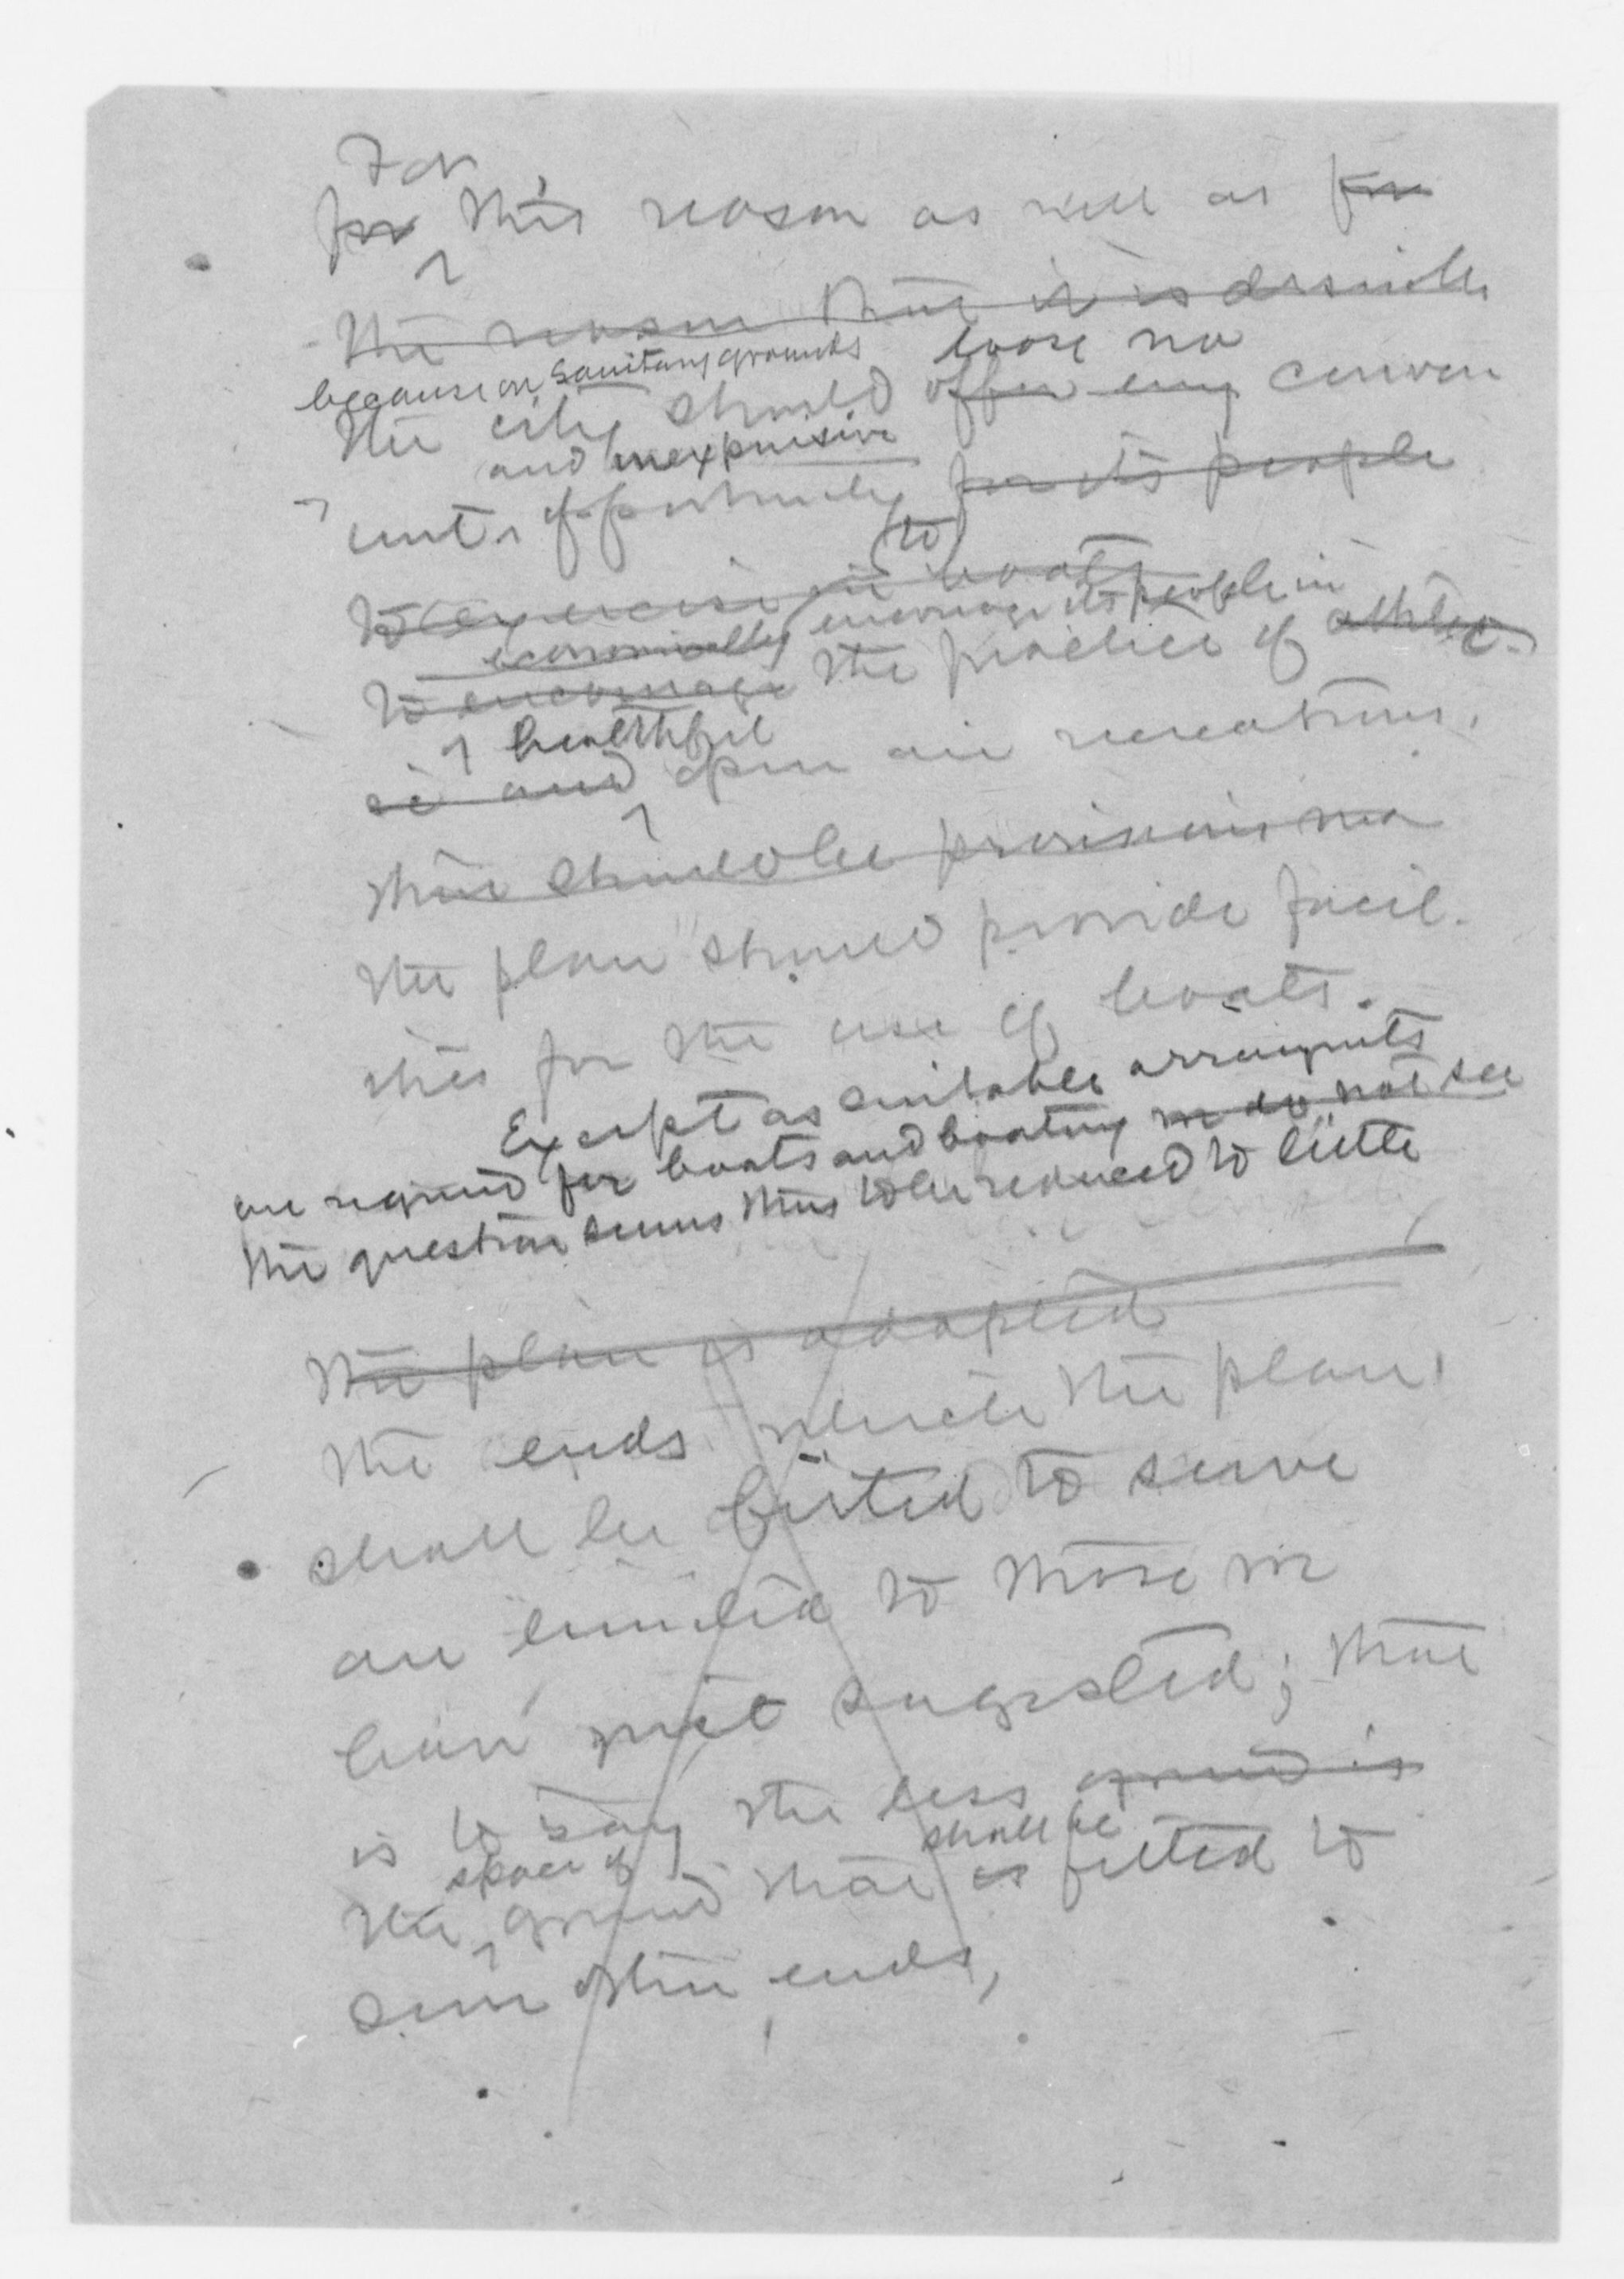 For
for this reason as well as for
the reason that it is desirable
because on sanitary grounds loose no
the city should offer every conven
and inexpensive
ient opportunity for its people
to
to exercise in boats
economically encourage its people in
to encourage the practice of athlet-
healthful
ic and open air recreations,
there should be provisions ma
the plan should provide facil-
ities for the use of boats.
Except as suitable arrangmts
are required for boats and boating we do not see
the question seems thus to be reduced to little
the plan is adapted
the ends which the plan
shall be fitted to serve
are limited to those we
have just suggested; that
is to say the less ground is
space of shall be
the ground that is fitted to
serve other ends,